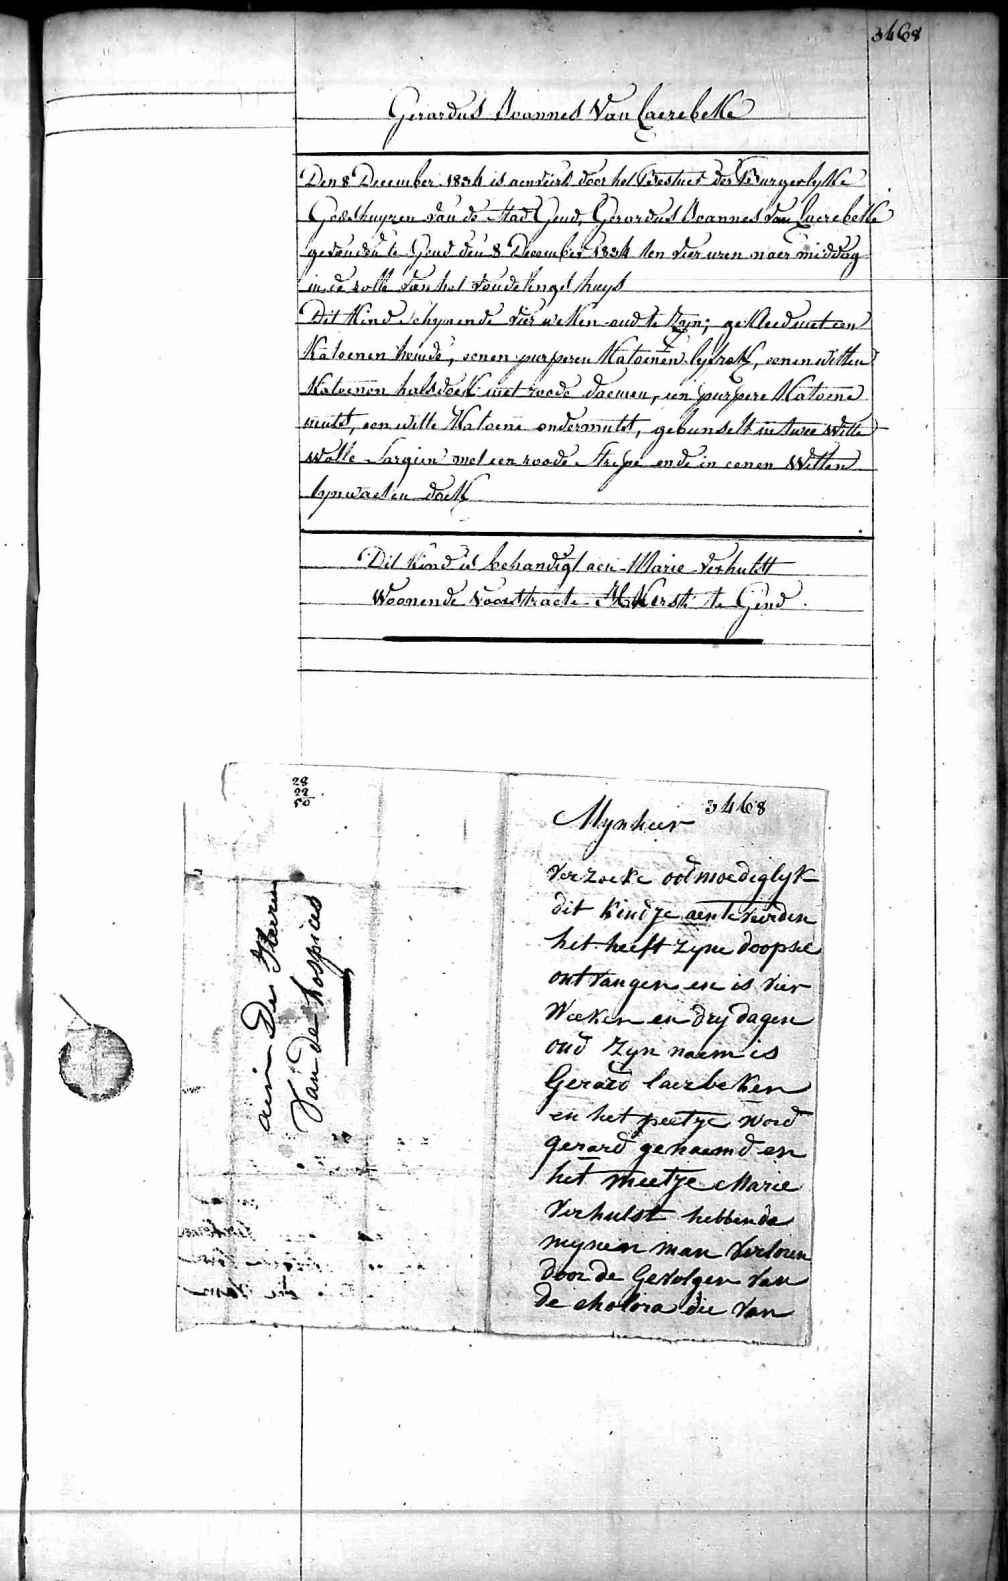 3468
Gerardus Joannes Van Caerebeke
Den 8 December 1834 is aenveird door het Bestuer der Burgerlyke
Godshuyzen van de Stad Gend, Gerardus Joannes Van Caerebeke
gevonden te Gend den 8 December 1834 ten vier uren naer middag
in de rolle van het vondelingel huys
Dit Kind schynende vier weken oud te Zyn; gekleed met een
Katoenen hemde, eenen purperen Katoenen lyfrok, eenen witten
Katoenen halsdoek met roode daemen, een purpere Katoene
mutst, een witte Katoene ondermutst, gebunselt in twee witte
wolle Sargien met een roode Strepe ende in eenen Witten
lynwaeten doek
Dit Kind is behandigt aen Marie Verhulst
Woonende Voorstraete H. Kerst te Gend.
28
22
50
aen De Heeren
Van de hospices
3468
Mynheer
Verzoeke ootmoediglyk
dit kindje aen te veirden
het heeft zyne doopsel
ontvangen en is vier
Weeken en dry dagen
oud Zyn naem is
Gerard Caerbeken
en het peetje word
gerard genaemd en
het meetje Marie
Verhulst hebbende
mynen man verloren
door de Gevolgen van
de cholora die van